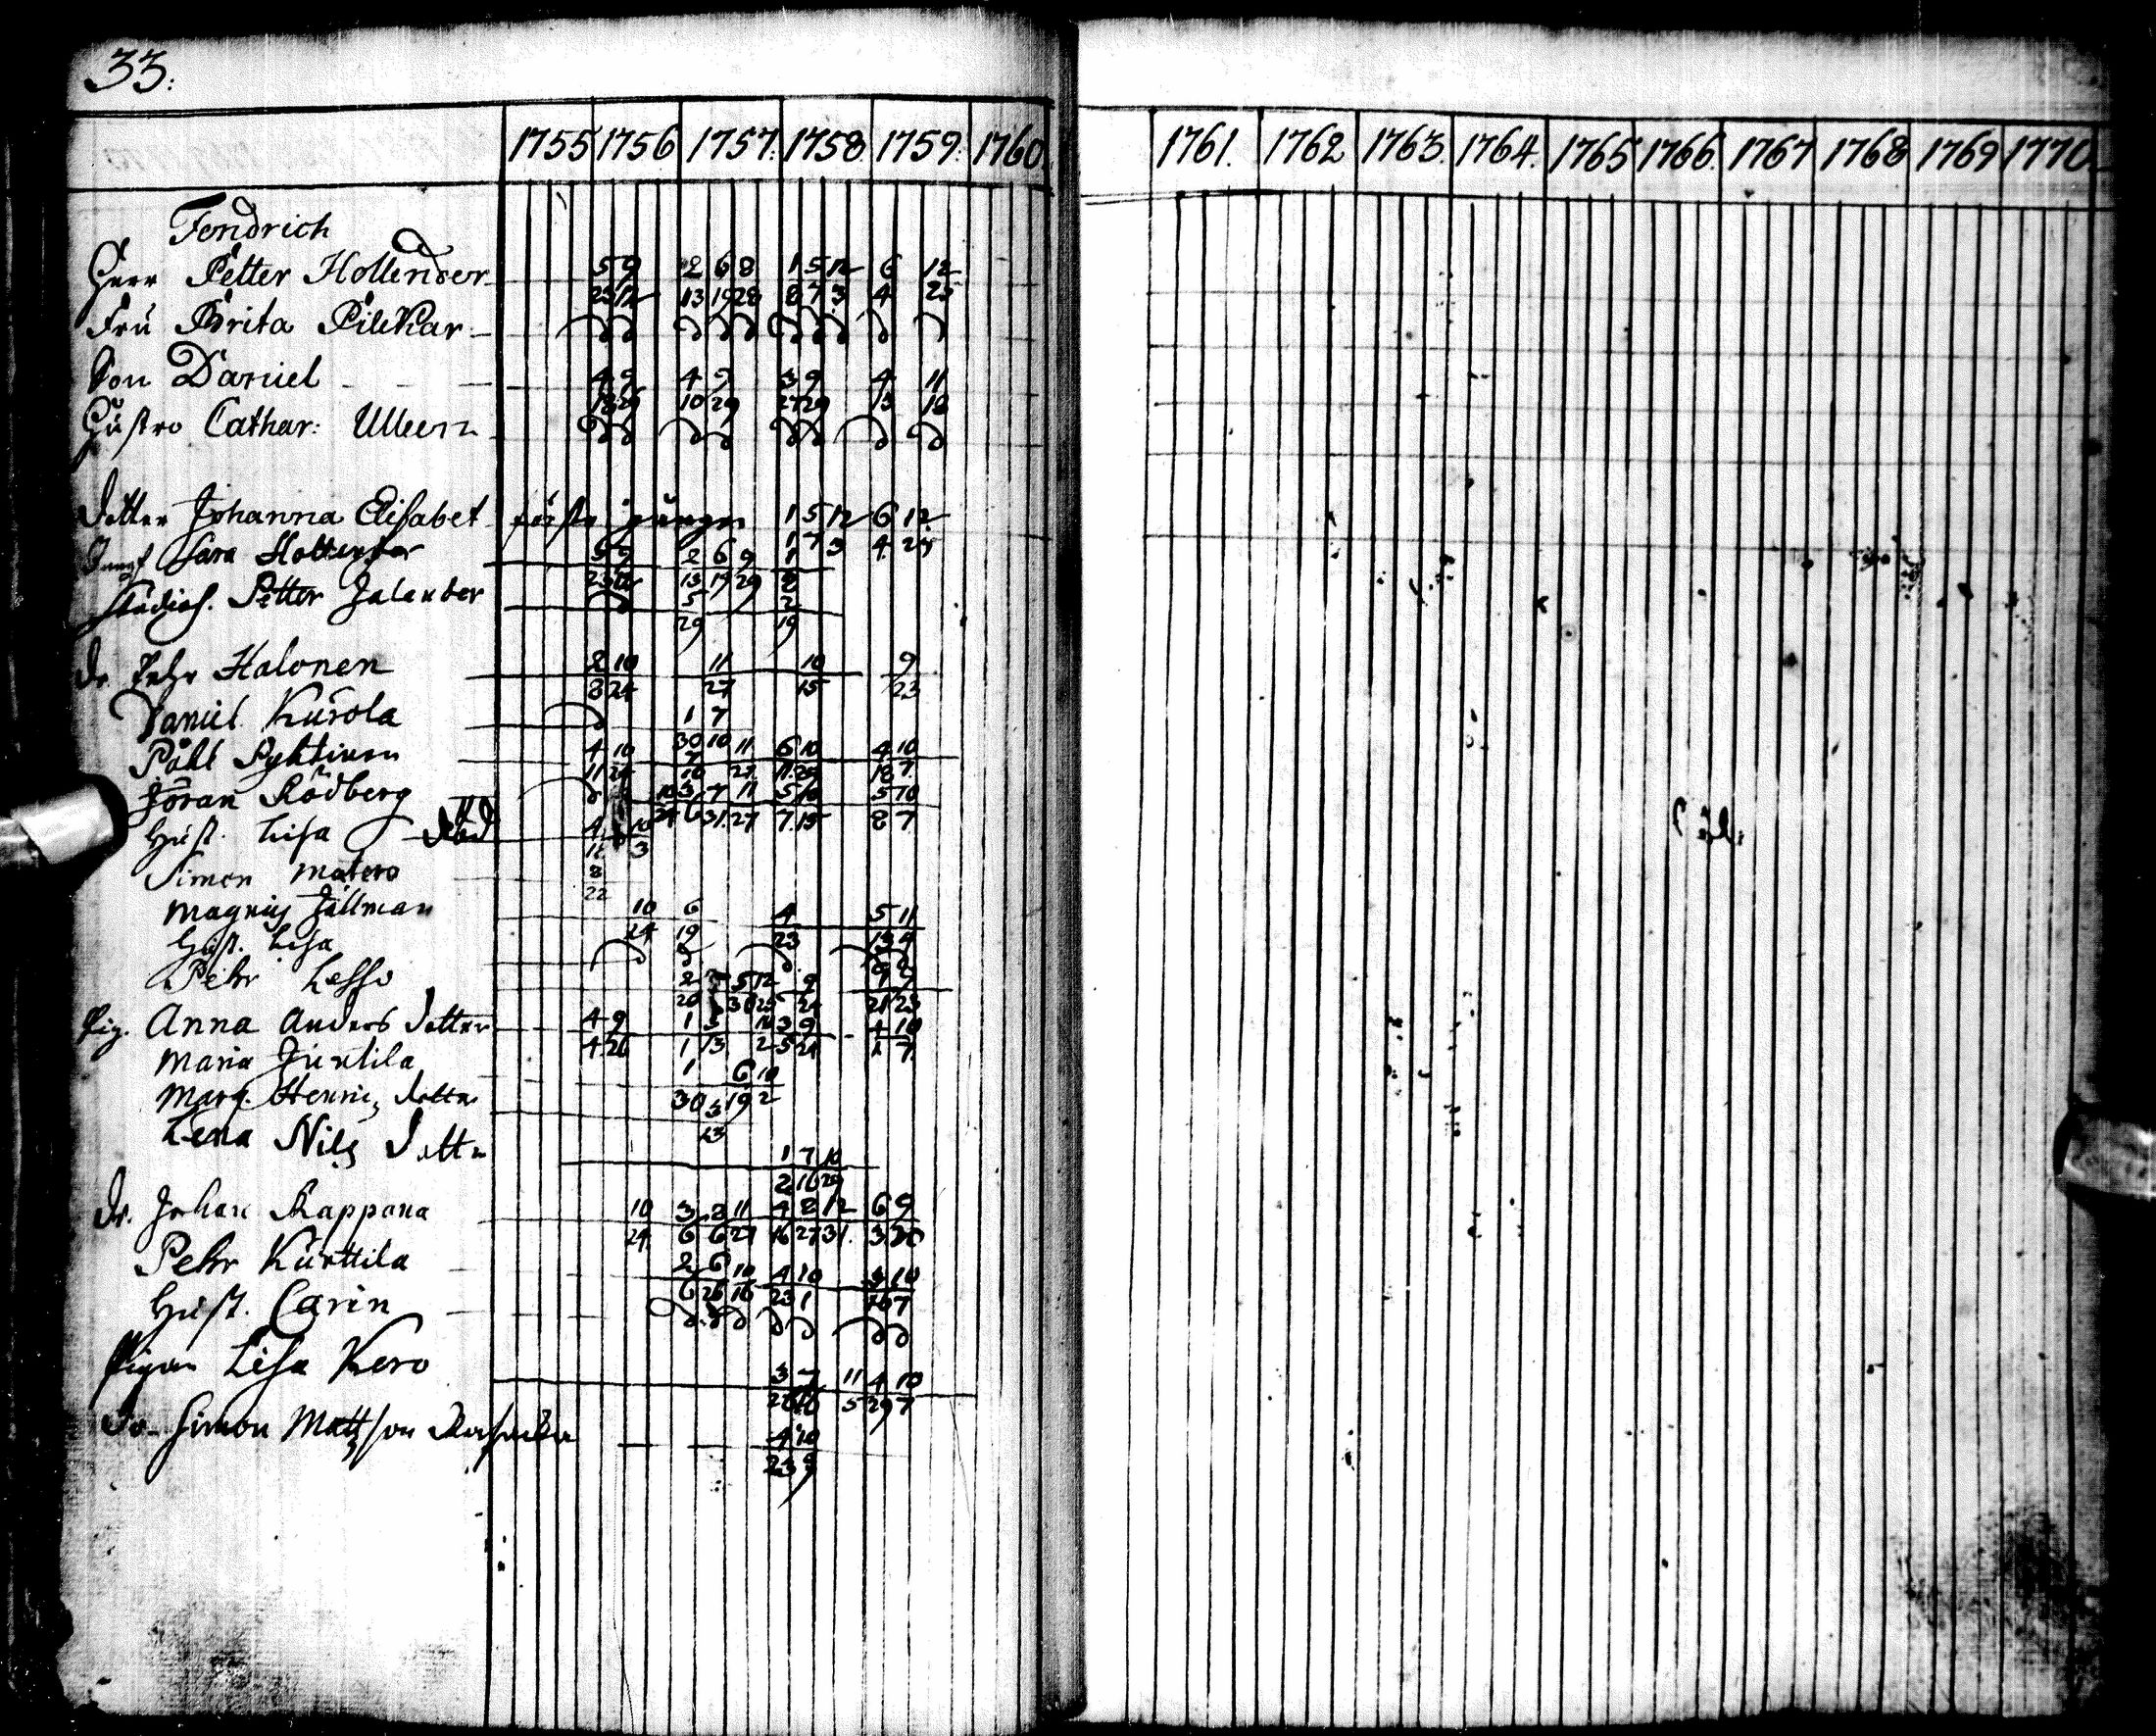 33.
1755 1756 1757. 1758. 1759. 1760. 1761. 1762 1763. 1764. 1765 1766. 1767 1768 1769 1770
Fendrich
Herr Petter Hollender 5 9 2 6 8 1 5 12 6 12
23 12 13 19 28 8 7 3 4 25
Fru Brita Pilekar
Son Daniel 4 9 4 9 3 9 4 11
18 29 10 29 27 29 13 18
Hustro Cathar:
Dotter Johanna Elisabet första gången 1 5 12 6 12
1 7 3 4 25
Jungf Sara Hollender 5 9 2 6 9 1
23 12 13 19 29 8
Studios. Petter 5 2
29 19
Dr. Pehr Halonen 8 10 11 10 9
8 24 27 15 23
Daniel Kurola 1 7
30 10
Påhl 4 10 7 11 6 10 4 10
11 24 10 27 11 29 18 7
Jöran Rödberg 10 3 7 11 5 10 5 10
24 6 31 27 7 15 8 7
Hust. Lisa död 4 10
11 3
Simon Matero 8
22
Magnus Jällman 10 6 4 5 11
24 19 23 13 4
Hust. Lisa
Pehr Lesso 2 5 12 9 9 9
20 30 25 24 21 23
Pig. Anna Anders dotter 4 9 1 3 10 3 9 4 10
4 26 1 13 2 5 24 2 7
Maria 1 6 10
30 19 2
Marg. Henrics dotter 3
23
Lena Nils dotter 1 7 10
2 16 29
Dr. Johan Kappana 10 3 8 11 4 8 12 6 9
24 6 6 27 16 27 31. 3 30
Pehr Kurttila 2 6 10 4 10 3 10
6 26 16 23 1 16 7
Hust. Carin
Pigan Lisa Kero 3 7 11 4 10
26 16 5 29 7
Dr. Simon Mattsson 4 10
23 9